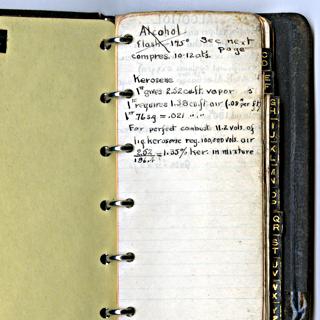 Alcohol
Flash - 175° See next
page
compres. 10-12 ats.
Kerosene
1# gives 2.52 cu.ft. vapor
1# requires 138 cu.ft. air
1" 76 sq = .021 " "
For perfect combust. 11.2 vols. of
liq. kerosene req. 100,000 vols. air
= 1.35% Ker. in mixture
C
D
E
F
G
H
I
J
K
L
M
N
O
P
Q
R
S
T
U
V
W
X
Y
Z